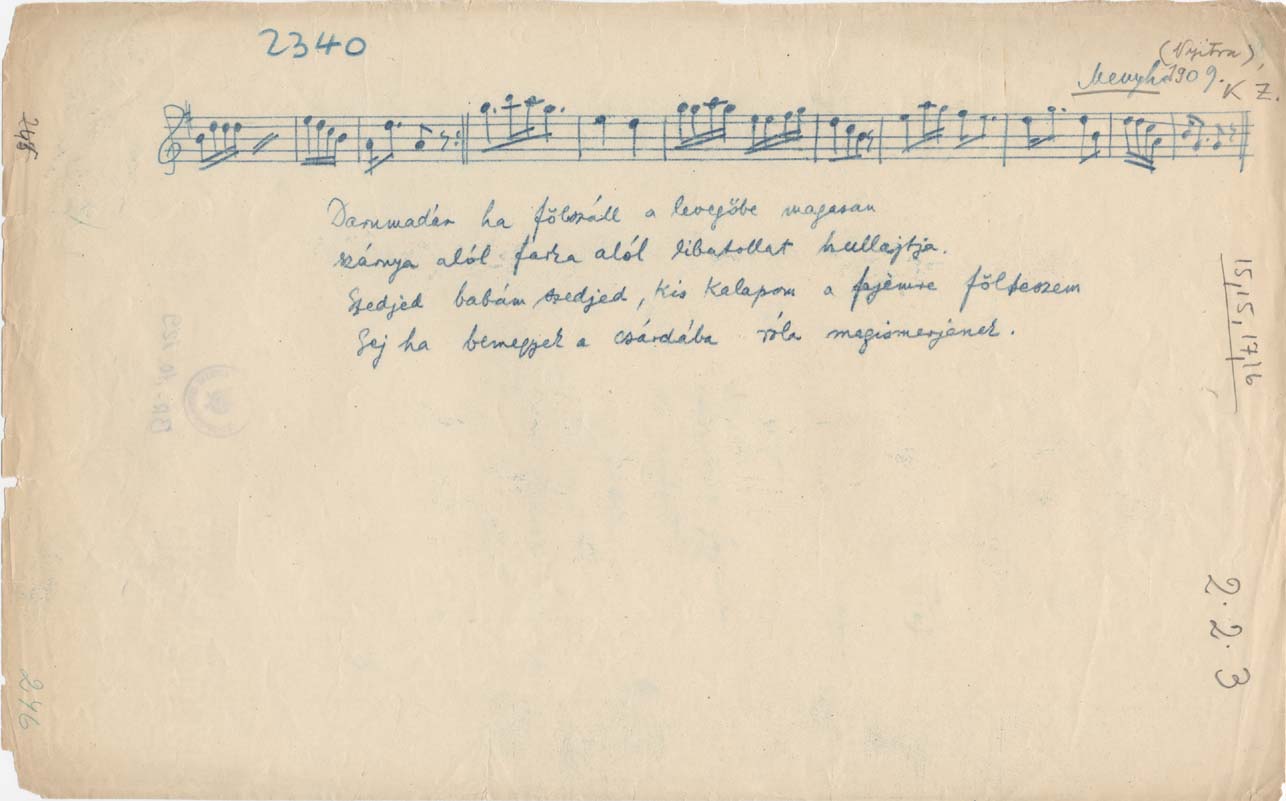 2340
(Nyitra),
Menyhe 1909.
K Z.
Darumadár ha fölszáll a levegőbe magasan
szárnya alól farka alól libatollat hullajtja.
Szedjed babám szedjed, kis kalapom a fejemre fölteszem
Ha bemegyek a csárdába róla megismerjenek.
15, 15, 17, 16
2.2.3
246